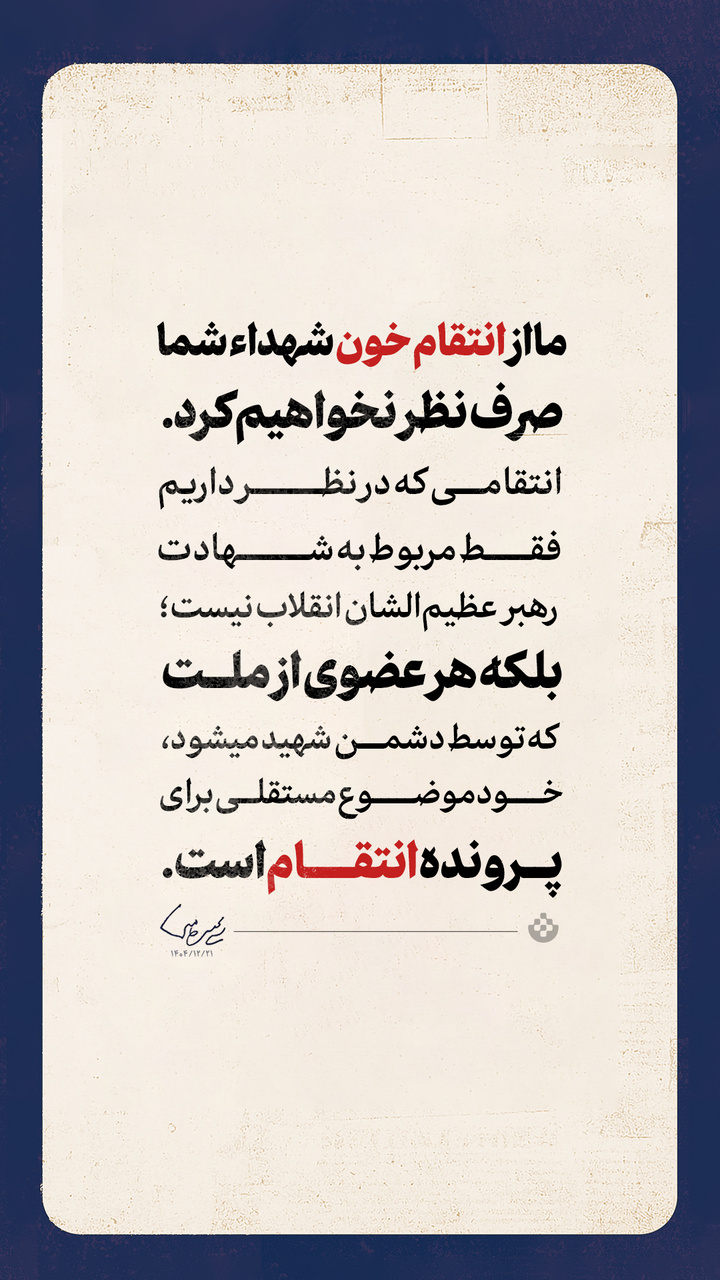 ما از انتقام خون شهداء شما
صرف نظر نخواهیم کرد.
انتقامی که در نظر داریم
فقط مربوط به شهادت
رهبر عظیم الشان انقلاب نیست؛
بلکه هر عضوی از ملت
که توسط دشمن شهید میشود،
خود موضوع مستقلی برای
پرونده انتقام است.
۱۴۰۴/۱۲/۲۱